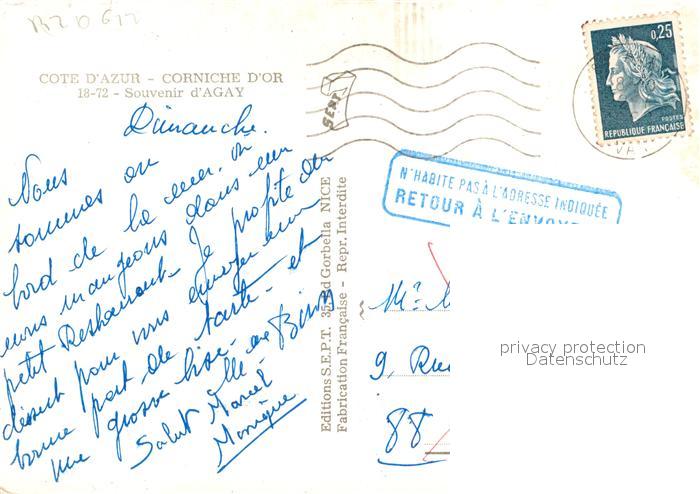 BZO612
COTE D'AZUR - CORNICHE D'OR
18-72 - Souvenir d'AGAY
Dimanche.
Nous
sommes au
bord de la mer. On
mangeons dans un
petit Restaurant. Je profite du
dessert pour vous envoyer une
bonne part de tarte - et
une grosse bise -
Salut Marcel
Monique
Editions S.E.P.T. Gorbella NICE
Fabrication Française - Repr. Interdite
SEPT
0,25
POSTES
REPUBLIQUE FRANÇAISE
VAR
N'HABITE PAS À L'ADRESSE INDIQUÉE
RETOUR À L'ENVOYE
9, Rue
88
privacy protection
Datenschutz